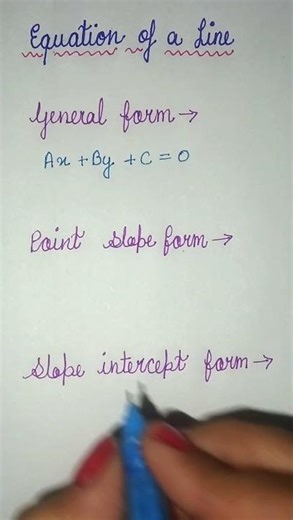 Equation of a Line
General form →
Ax + By + C = 0
Point slope form →
Slope intercept form →